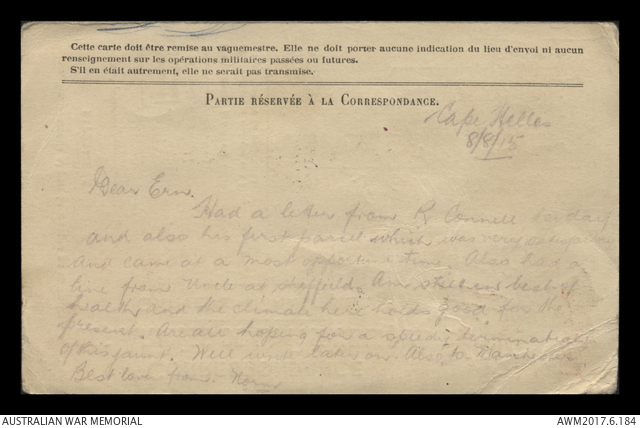 Cette carte doit être remise au vaguemestre. Elle ne doit porter aucune indication du lieu d'envoi ni aucun
renseignement sur les opérations militaires passées ou futures.
S'il en était autrement, elle ne serait pas transmise.
PARTIE RÉSERVÉE À LA CORRESPONDANCE.
Cape Helles
8/8/15
Dear Ern.
Had a letter from R. Connell
and also his first parcel which was very
and came at a most opportune time. Also had a
line from Uncle at Am still in best of
health and the climate here holds good for the
present. Are all hoping for a speedy termination
of this jaunt. Will write later on. Also to
Best love from Norm
AUSTRALIAN WAR MEMORIAL
AWM2017.6.184